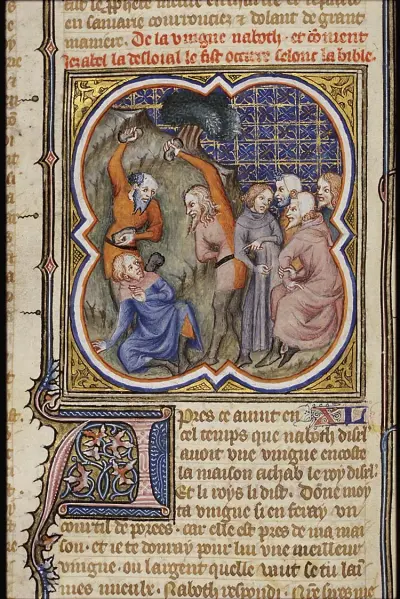 tuit le prophete
en samarie courrouciez & dolant de grant
maniere. De la vuigne naboth. et cōment
iezabel la desloial le fist occirre selonc la bible.
Apres ce auint en
cel temps que naboth disrl
auoit vne vingne encoste
la maison achab le roy disrl
Et li roys li dist. Dōne moy
ta vingne si en feray vn
courtil de porees. car elle est pres de ma mai
son. et ie te donray pour lui vne meilleur
vingne. ou largent quelle vaut se tu lai
mes mieulx. Naboth respondi.